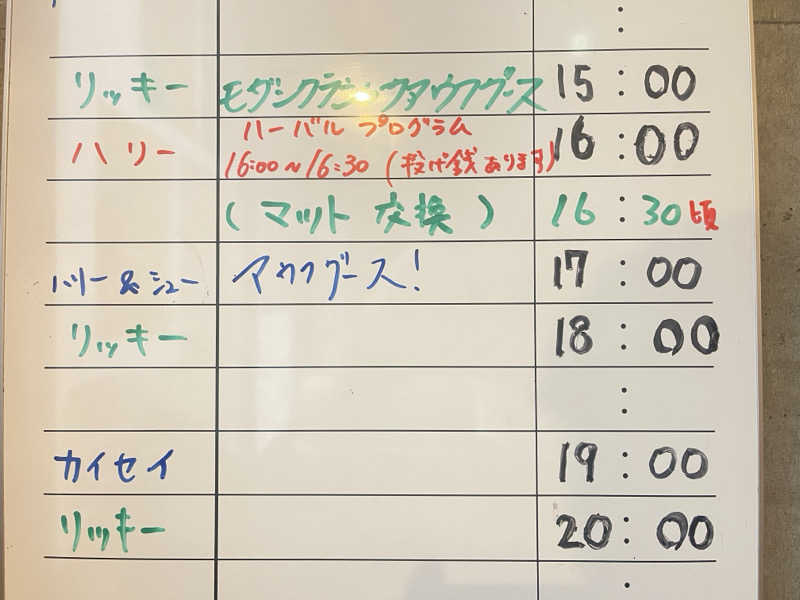 :
リッキー モダンクラシックアウフグース 15:00
ハリー ハーバル プログラム 16:00
16:00~16:30 (投げ銭あります)
(マット 交換) 16:30頃
ハリー & シュー アウフグース! 17:00
リッキー 18:00
:
カイセイ 19:00
リッキー 20:00
: